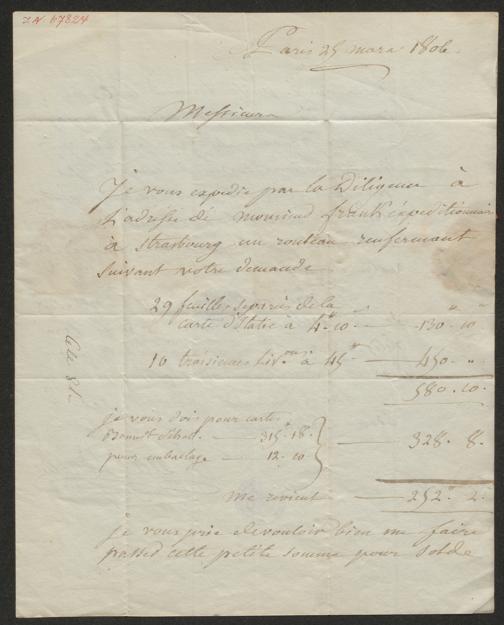 I.N. 67824
Paris 25 mars 1806.
Messieurs
Je vous expedie par la Diligence à
l'adresse de monsieur frank expeditionnaire
à Strasbourg un rouleau renfermant
suivant votre demande
29 feuilles separés de la
carte d'Italie à 4.10 — 130. 10
10 troisiemes liv.ons à 45 — 450 "
580. 10.
je vous dois pour cartes
315. 18.
pour emballage — 12. 10
328. 8.
me revient — 252. 2.
je vous prie de vouloir bien me faire
passer cette petite somme pour solde